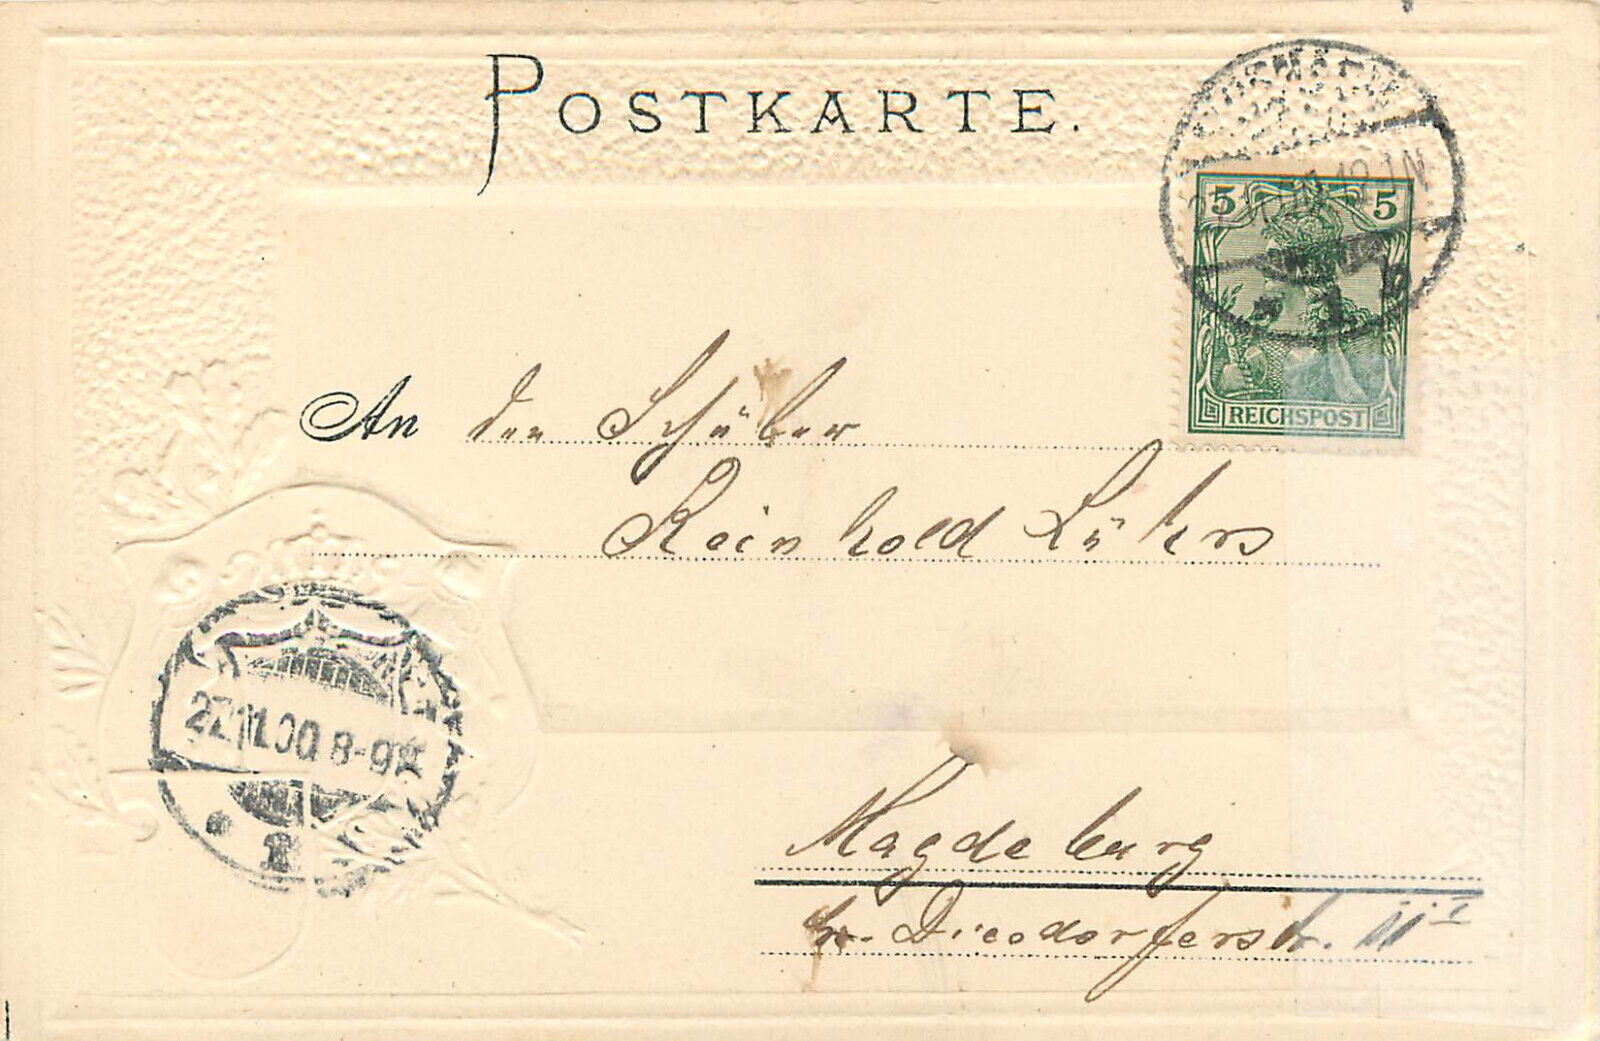 POSTKARTE.
5 5
REICHSPOST
An den Schüler
Reinhold Lührs
27.11.00 8-9
1
Magdeburg
Gr. Diesdorferstr.